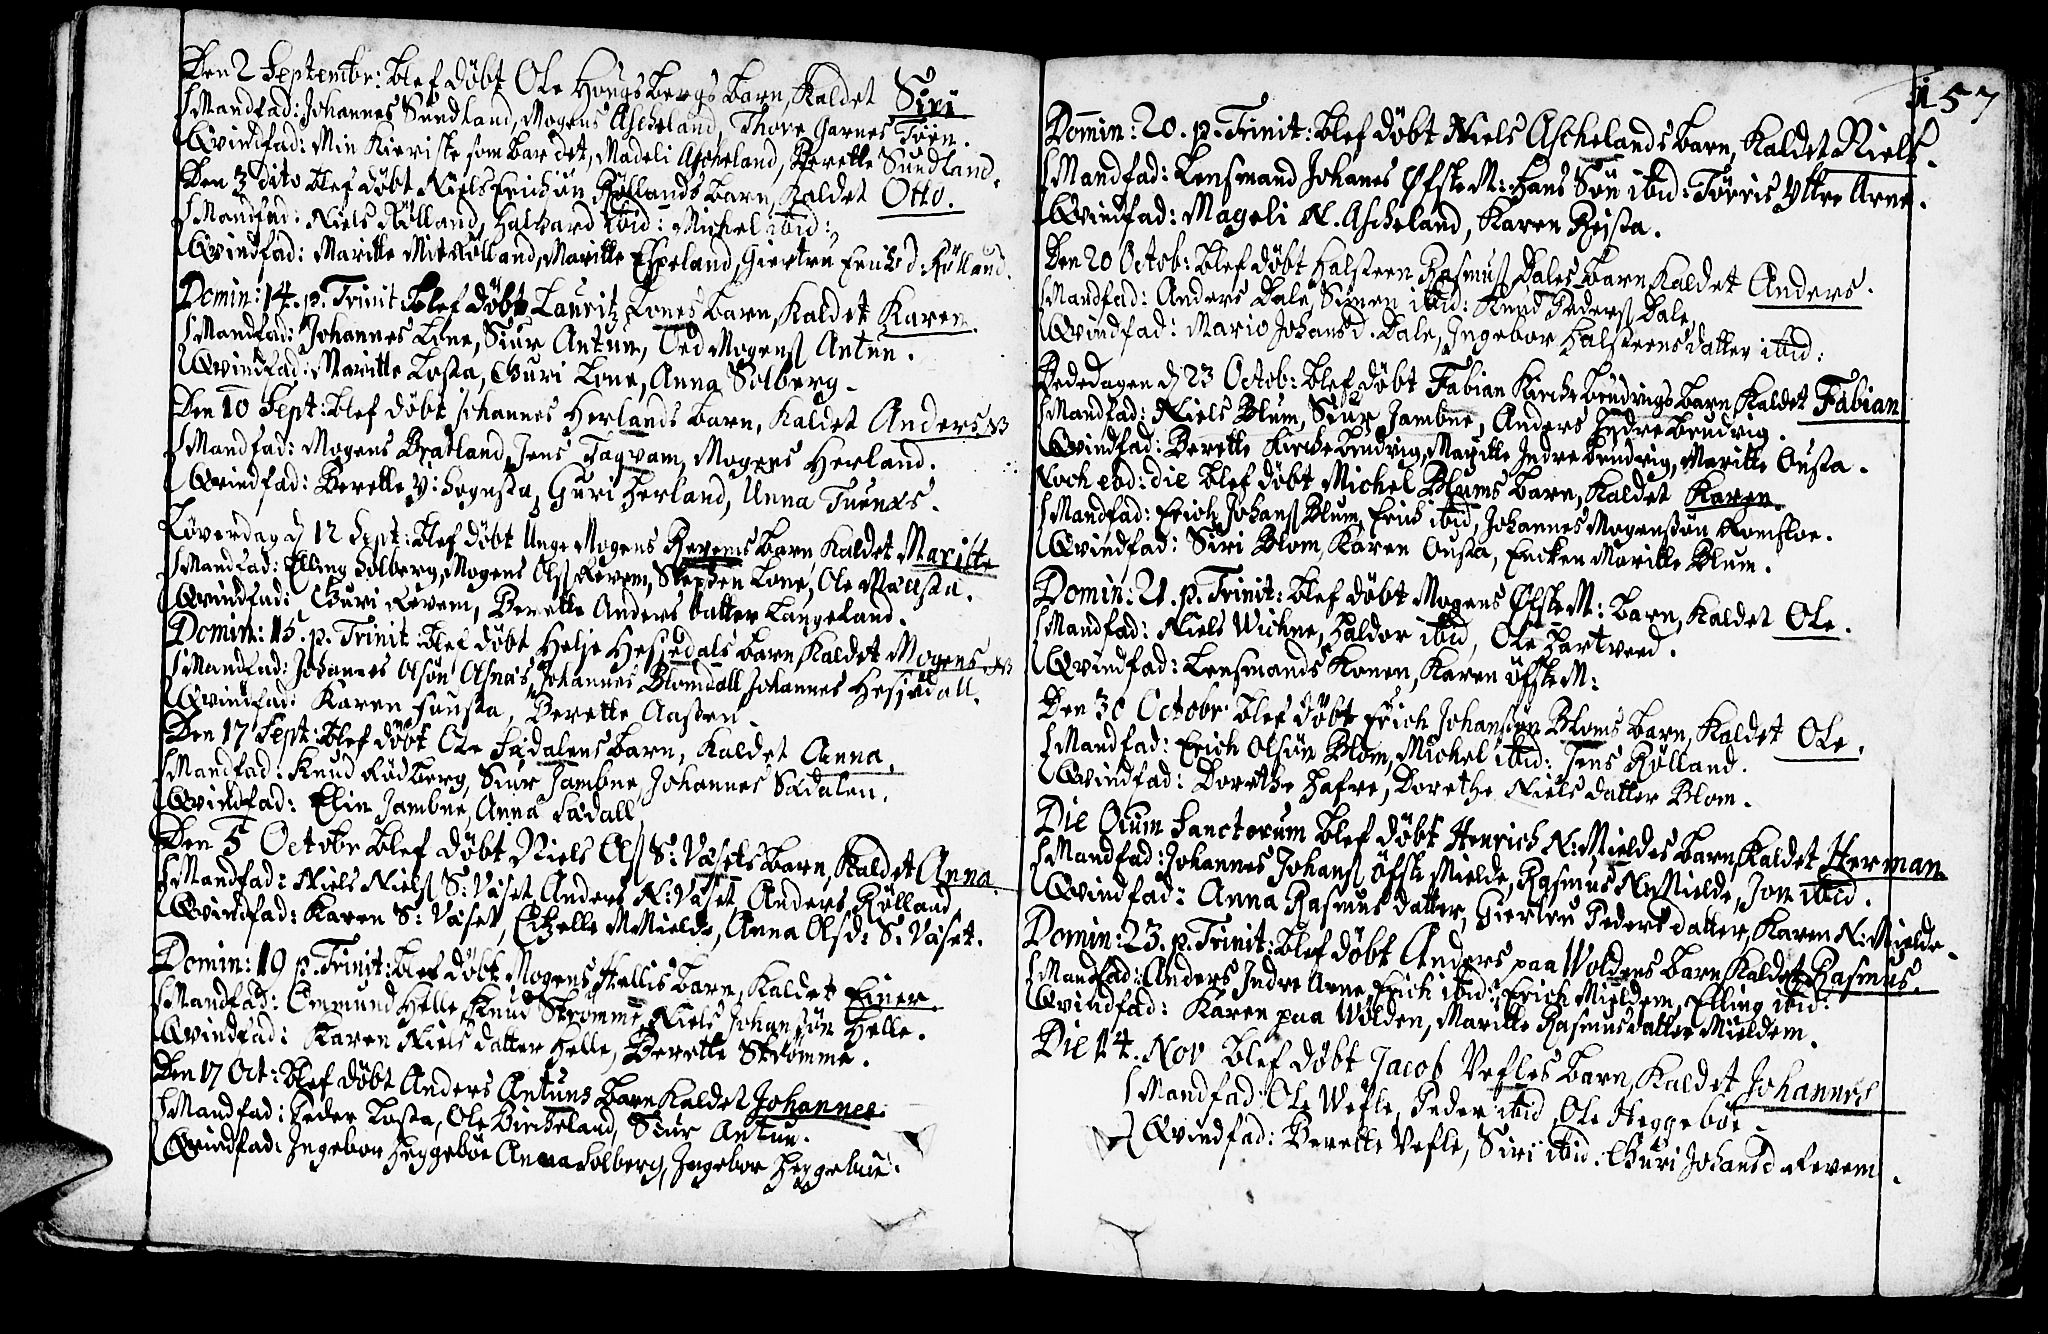 Den 2 Septembr: blef döbt Ole Hougsbergs barn, kaldet Siri
Mandfad: Johannes Sundland, Mogens Ascheland, Thore Garnes Töen.
Qvindfad: Min Kieriste som bar det, Madeli Ascheland, Berette Sundland.
Den 3 dito blef döbt Niels Erichsön Röllands barn, kaldet Otto.
Mandfad: Niels Rölland, Halvard ibid: Michel ibid:
Qvindfad: Maritte Rölland, Maritte Espeland, Giertru Erichsd: Rölland.
Domin: 14. p. Trinit blef döbt Lauritz Lones barn, kaldet Karen.
Mandfad: Johannes Lone, Siur Antun, Oed Mogens Antun.
Qvindfad: Maritte Losta, Guri Lone, Anna Solberg.
Den 10 Sept: blef döbt Johannes Herlands barn, kaldet Anders. NB
Mandfad: Mogens Bratland, Jens Tagvam, Mogens Herland.
Qvindfad: Berette Y: Sognsta, Guri Herland, Unna Tuenes.
Löverdag d 12 Sept: blef döbt Unge Mogens Revems barn, kaldet Maritte
Mandfad: Elling Solberg, Mogens Ols Revem, Steffen Lone, Ole
Qvindfad: Guri Revem, Berette Anders datter Langeland.
Domin: 15. p. Trinit: blef döbt Helje Hesjedals barn, kaldet Mogens. NB
Mandfad: Johannes Olsön Olsnas, Johannes Blomdall Johannes Hesjedall.
Qvindfad: Karen Fuusta, Berette Aasen.
Den 17 Sept: blef döbt Ole Sædalens barn, kaldet Anna.
Mandfad: Knud Rödberg, Siur Jambne, Johannes Sædalen.
Qvindfad: Elin Jambne, Anna Sædall.
Den 5 Octobr blef döbt Niels Ols S: Væsets barn, kaldet Anna.
Mandfad: Niels Niels S: Væset, Anders N: Væset, Anders Rölland
Qvindfad: Karen S: Væset, Citzelle Mielde, Anna Olsd: S: Væset.
Domin: 19 p. Trinit: blef döbt Mogens Hellis barn, kaldet Einer.
Mandfad: Ommund Helle, Knud Strömme, Niels Johansön Helle.
Qvindfad: Karen Niels datter Helle, Berette Strömme.
Den 17 Oct: blef döbt Anders Antuns barn kaldet Johannes.
Mandfad: Peder Losta, Ole Bircheland, Siur Antun.
Qvindfad: Ingebor Heggeböe Anna Solberg, Ingebor Heggebue.
157
Domin: 20. p. Trinit: blef döbt Niels Aschelands barn, kaldet Niels.
Mandfad: Lensmand Johanes Öfste M: hans Sön ibid: Törris Yttre Arne.
Qvindfad: Mageli N. Ascheland, Karen Reista.
Den 20 Octob: blef döbt Halsteen Rasmus Dales barn, kaldet Anders.
Mandfad: Anders Dale, Simen ibid: Knud Peders Dale,
Qvindfad: Mario Johansd. Dale, Ingebor Halsteens datter ibid:
Bededagen d 23 Octob: blef döbt Fabian Kirchebrudvigs barn, kaldet Fabian
Mandfad: Niels Blum, Siur Jambne, Anders Indre brudvig.
Qvindfad: Berette Kirchebrudvig, Maritte Indre brudvig, Maritte Ousta.
Noch ebd: die blef döbt Michel Blums barn, kaldet Karen.
Mandfad: Erich Johans Blum, Erich ibid, Johannes Mogensön Romsloe.
Qvindfad: Siri Blom, Karen Ousta, Encken Maritte Blum.
Domin: 21. p. Trinit: blef döbt Mogens Öfste M: barn, kaldet Ole.
Mandfad: Niels Wichne, Haldor ibid, Ole Hartveed.
Qvindfad: Lensmands Konen, Karen öfste M:
Den 30 Octobr blef döbt Erich Johansön Bloms barn, kaldet Ole.
Mandfad: Erich Olsön Blom, Michel ibid: Jens Rölland.
Qvindfad: Dorethe Hafre, Dorethe Niels datter Blom.
Die Oium Sanctorum blef döbt Henrich N: Mieldes barn, kaldet Herman
Mandfad: Johannes Johans öfste Mielde, Rasmus N: Mielde, Jon ibid.
Qvindfad: Anna Rasmus datter, Giertru Peders datter, Karen N: Mielde.
Domin: 23. p. Trinit: blef döbt Anders paa Woldens barn kaldet Rasmus.
Mandfad: Anders Indre Arne, Erich ibid: Erich Mieldem, Elling ibid:
Qvindfad: Karen paa Wolden, Maritte Rasmusdatter Mieldem.
Die 14. Nov blef döbt Jacob Vefles barn, kaldet Johannes
Mandfad: Ole Wefle, Peder ibid, Ole Heggeböe.
Qvindfad: Berette Vefle, Siri ibid. Guri Johansd Revem.